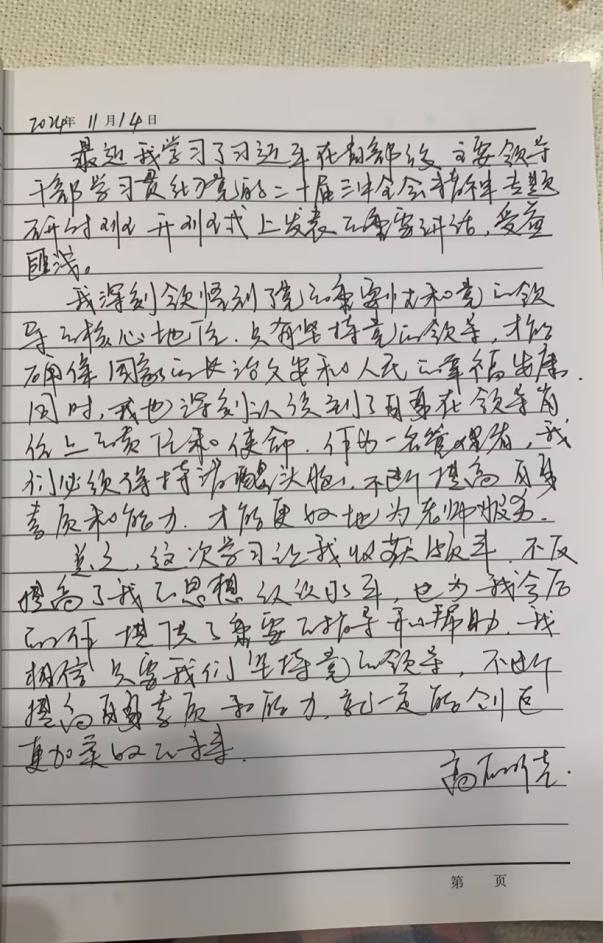 2024年 11月14日
最近我学习了习近平在省部级主要领导
干部学习贯彻党的二十届三中全会精神专题
研讨班开班式上发表的重要讲话,受益
匪浅。
我深刻领悟到了党的重要性和党的领
导的核心地位.只有坚持党的领导,才能
确保国家的长治久安和人民的幸福安康.
同时,我也深刻认识到了自身在领导岗
位上的责任和使命.作为一名管理者,我
们必须保持清醒头脑,不断提高自身
素质和能力.才能更好地为老师服务.
总之,这次学习让我收获颇丰,不仅
提高了我的思想认识水平,也为我今后
的工作提供了重要的指导和帮助.我
相信只要我们坚持党的领导,不断
提高自身素质和能力,就一定能创造
更加美好的未来.
高
第 页